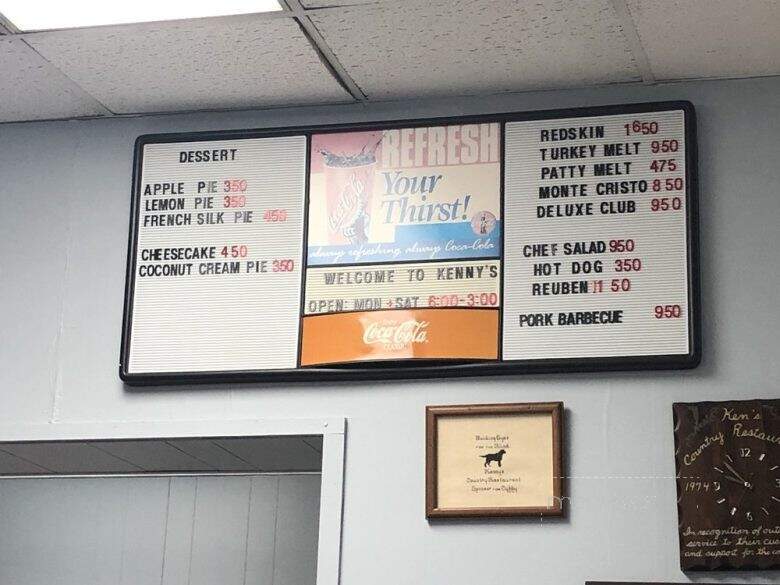 DESSERT
APPLE PIE 350
LEMON PIE 350
FRENCH SILK PIE 450
CHEESECAKE 450
COCONUT CREAM PIE 350
REFRESH
Your
Thirst!
Coca-Cola
always refreshing, always Coca-Cola
WELCOME TO KENNY'S
OPEN: MON + SAT 6:00-3:00
Coca-Cola
CLASSIC
REDSKIN 1650
TURKEY MELT 950
PATTY MELT 475
MONTE CRISTO 850
DELUXE CLUB 950
CHEF SALAD 950
HOT DOG 350
REUBEN 11 50
PORK BARBECUE 950
Kenny's
Country Restaurant
Ken's
Country Restau
12
1974
3
6
In recognition of
service to their cus
and support for the co